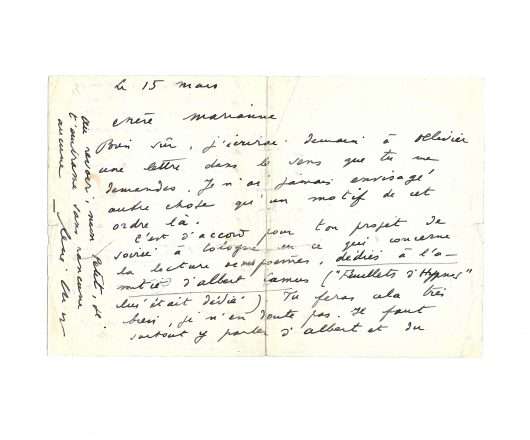 Le 15 mars
chère Marianne
Bien sûr, j'écrirai demain à Olivier
une lettre dans le sens que tu me
demandes. Je n'ai jamais envisagé
autre chose qu'un motif de cet
ordre là.
C'est d'accord pour ton projet de
soirée à Cologne en ce qui concerne
la lecture poèmes, dédiés à l'a-
mitié d'Albert Camus ("Feuillets d'Hypnos"
lui était dédié) Tu feras cela très
bien, je n'en doute pas. Il faut
surtout y parler d'Albert et du
au revoir, mon
t'embrasse sans rancune
aucune